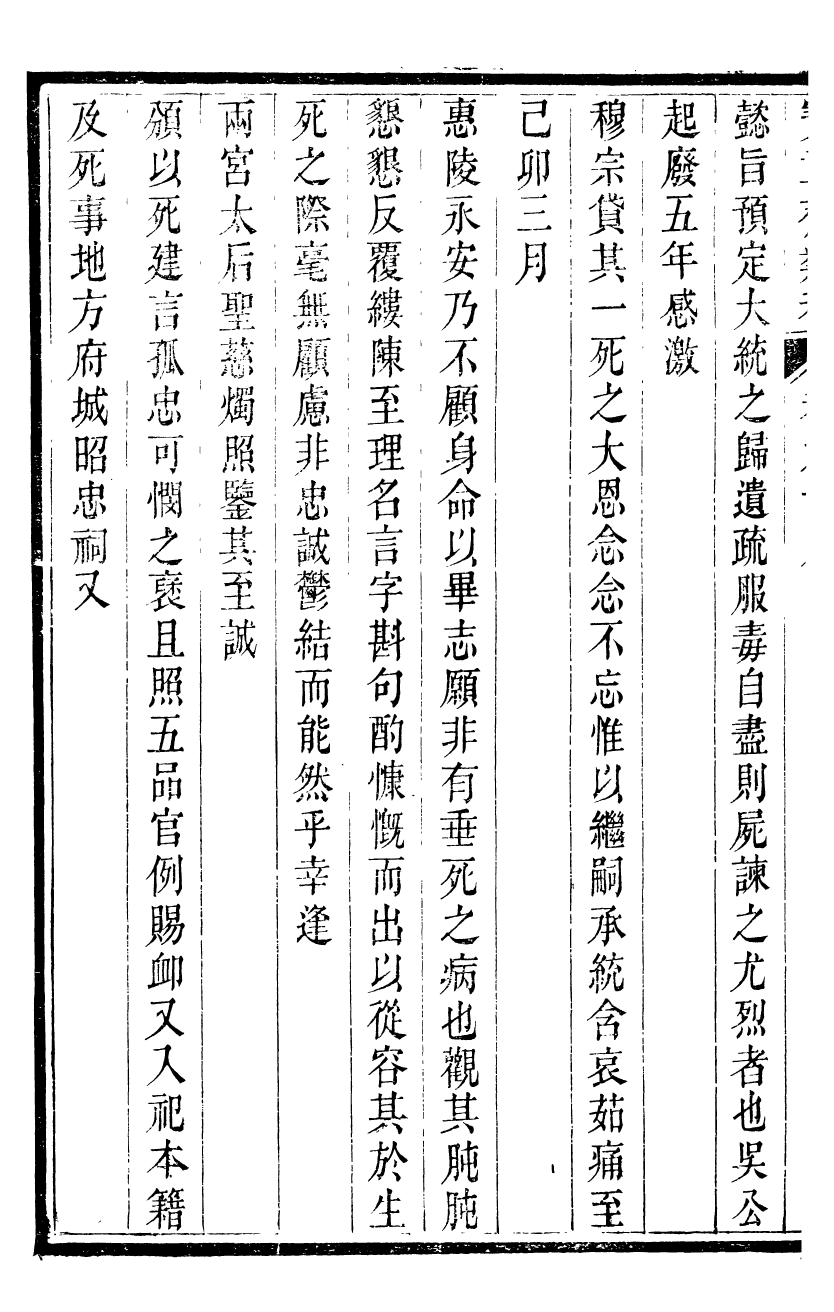 懿旨預定大統之歸遺疏服毒自盡則屍諫之尤烈者也吳公
起廢五年感激
穆宗貸其一死之大恩念念不忘惟以繼嗣承統含哀茹痛至
己卯三月
惠陵永安乃不顧身命以畢志願非有垂死之病也觀其肫肫
懇懇反覆縷陳至理名言字斟句酌慷慨而出以從容其於生
死之際毫無顧慮非忠誠鬱結而能然乎幸逢
兩宮太后聖慈燭照鑒其至誠
頒以死建言孤忠可憫之褒且照五品官例賜卹又入祀本籍
及死事地方府城昭忠祠又